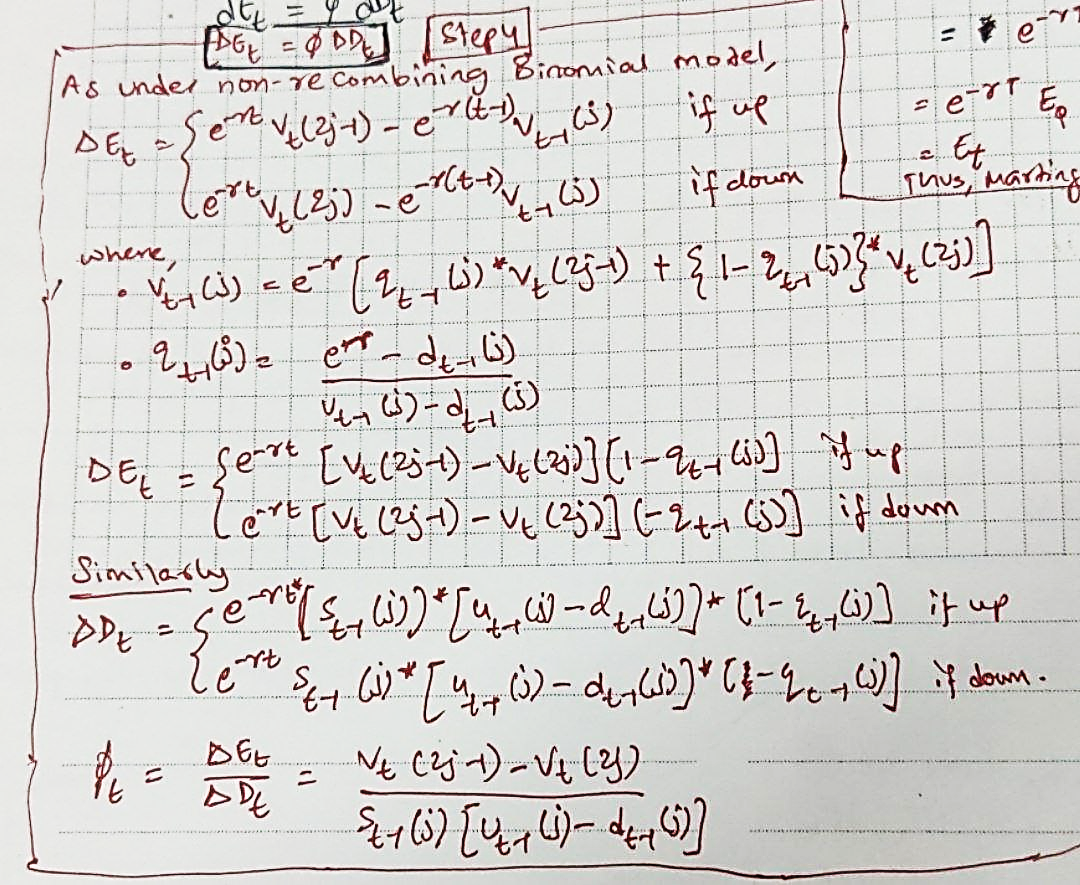 dE_t = φ dD_t
ΔE_t = φ ΔD_t   Step 4
As under non-recombining Binomial model,
ΔE_t = { e^{-rt} V_t(2j-1) - e^{-r(t-1)} V_{t-1}(j)   if up
e^{-rt} V_t(2j) - e^{-r(t-1)} V_{t-1}(j)   if down
where,
• V_{t-1}(j) = e^{-r} [q_{t-1}(j) * V_t(2j-1) + {1 - q_{t-1}(j)} * V_t(2j)]
• q_{t-1}(j) = (e^{r} - d_{t-1}(j)) / (u_{t-1}(j) - d_{t-1}(j))
ΔE_t = { e^{-rt} [V_t(2j-1) - V_t(2j)] [1 - q_{t-1}(j)]   if up
e^{-rt} [V_t(2j-1) - V_t(2j)] (-q_{t-1}(j)]   if down
Similarly
ΔD_t = { e^{-rt} * [S_{t-1}(j)] * [u_{t-1}(j) - d_{t-1}(j)] * [1 - q_{t-1}(j)]   if up
e^{-rt} S_{t-1}(j) * [u_{t-1}(j) - d_{t-1}(j)] * [-q_{t-1}(j)]   if down.
φ_t = ΔE_t / ΔD_t = (V_t(2j-1) - V_t(2j)) / (S_{t-1}(j) [u_{t-1}(j) - d_{t-1}(j)])
= e^{-r
= e^{-rT} E_Q
= E_t
Thus, Marting